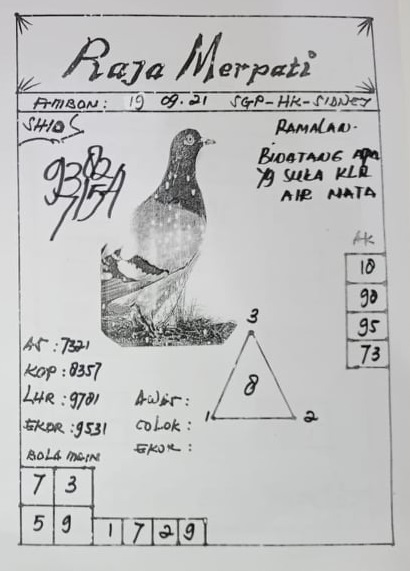 Raja Merpati
AMBON: 19 09.21 SGP-HK-SIDNEY
SHIO
RAMALAN.
BINATANG APA
Yg SUKA KLR
AIR MATA
AK
18
98
95
73
AS : 7321
KOP : 8357
LHR : 9781
EKOR : 9531
AWAS :
COLOK :
EKOR :
3
8
1 2
BOLA MAIN
7 3
5 9
1 7 2 9